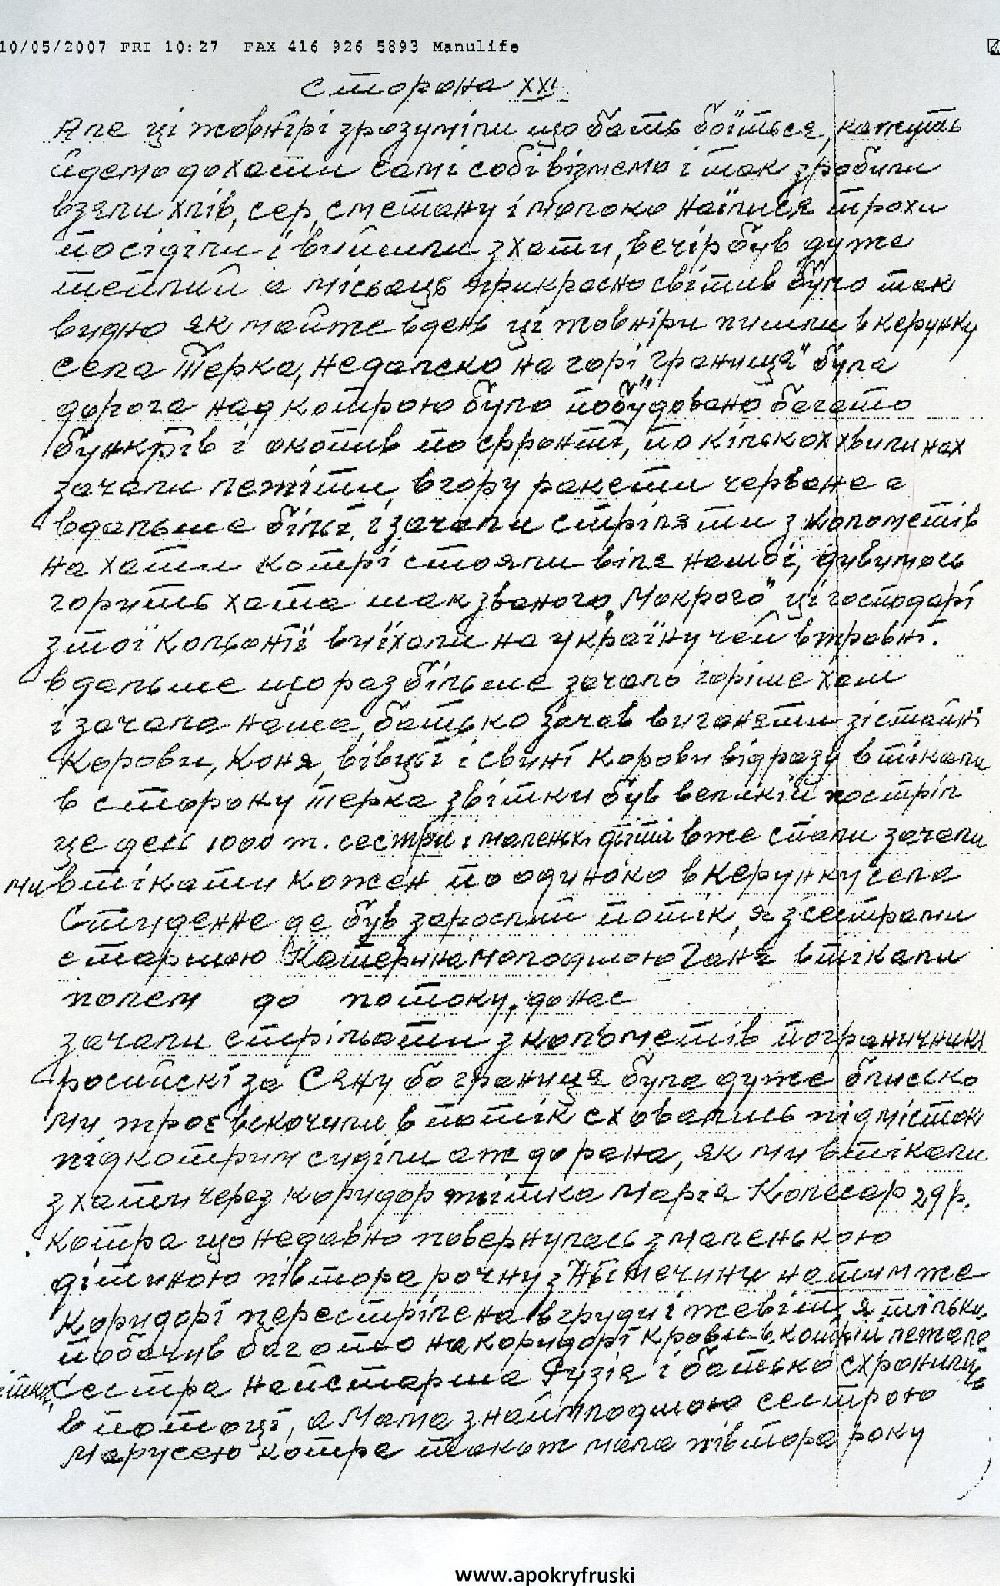 10/05/2007 FRI 10:27 FAX 416 926 5893 Manulife
Сторона XXI.
Але ці жовніри зрозуміли що бать боїться, кажуть
йдемо до хати самі собі візмемо і так зробили
взяли хліб, сер, сметану і молоко наїлися трохи
посіділи і вийшли з хати, вечір був дуже
теплий а місяць прикрасно світив було так
видно як майже вдень ці жовніри пишли в керунку
села Терка, недалеко на горі "границя" була
дорога над котрою було побудовано багато
бункрів і окопив по фронті, по кількох хвилинах
зачали летіти вгору ракети червоне а
вдальше білі, і зачали стріляти з кольометів
на хати котрі стояли біля нашої, дивимось
горить хата так званого "Мокрого" ці господарі
з тої кольонії виїхали на україну чей втровні.
вдальше що раз більше зачало горіше хат
і зачала наша, батько зачав виганяти зі стайні
Корови, Коня, вівці і свині корови відразу втікали
в сторону терка звітки був великий постріл
це десь 1000 м. сестри і маленькі діти вже стали зачали
ми втікати кожен по одиноко в керунку села
Студенне де був зарослий потік, я з сестрами
старшою Катерина молодшою Ганя втікали
полем до потоку, до нас
зачали стріляти з кольометів пограничники
росийскі за Сяну бо границя була дуже близько
ми троє вскочили в потік сховались під місток
під котрим сиділи аж до рана, як ми втікали
з хати через коридор тітка Марія Колесар 29 р.
котра що недавно повернулась з маленькою
дітиною півтора рочну з Нымечини на тим же
коридорі перестрілена в груди і жевіт, я тільки
побачив багато на коридорі крови в котрій лежала
тітка, Сестра найстарша Рузія і батько схронились
в потоці, а Мама з наймолодшою сестрою
Марусею котра також мала півтора року
www.apokryfruski